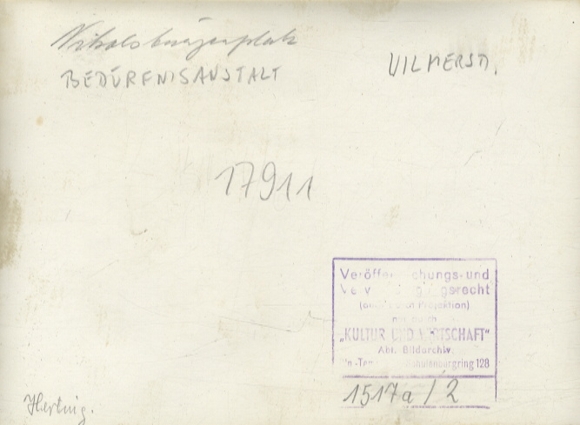 Nikolsburgerplatz
BEDÜRFNISANSTALT
VILMERSD.
17911
Veröffe chungs-und
gsrecht
"KULTUR UND WIRTSCHAFT"
Abt. Bildarchiv.
ring 128
1517a/2
Hertwig.